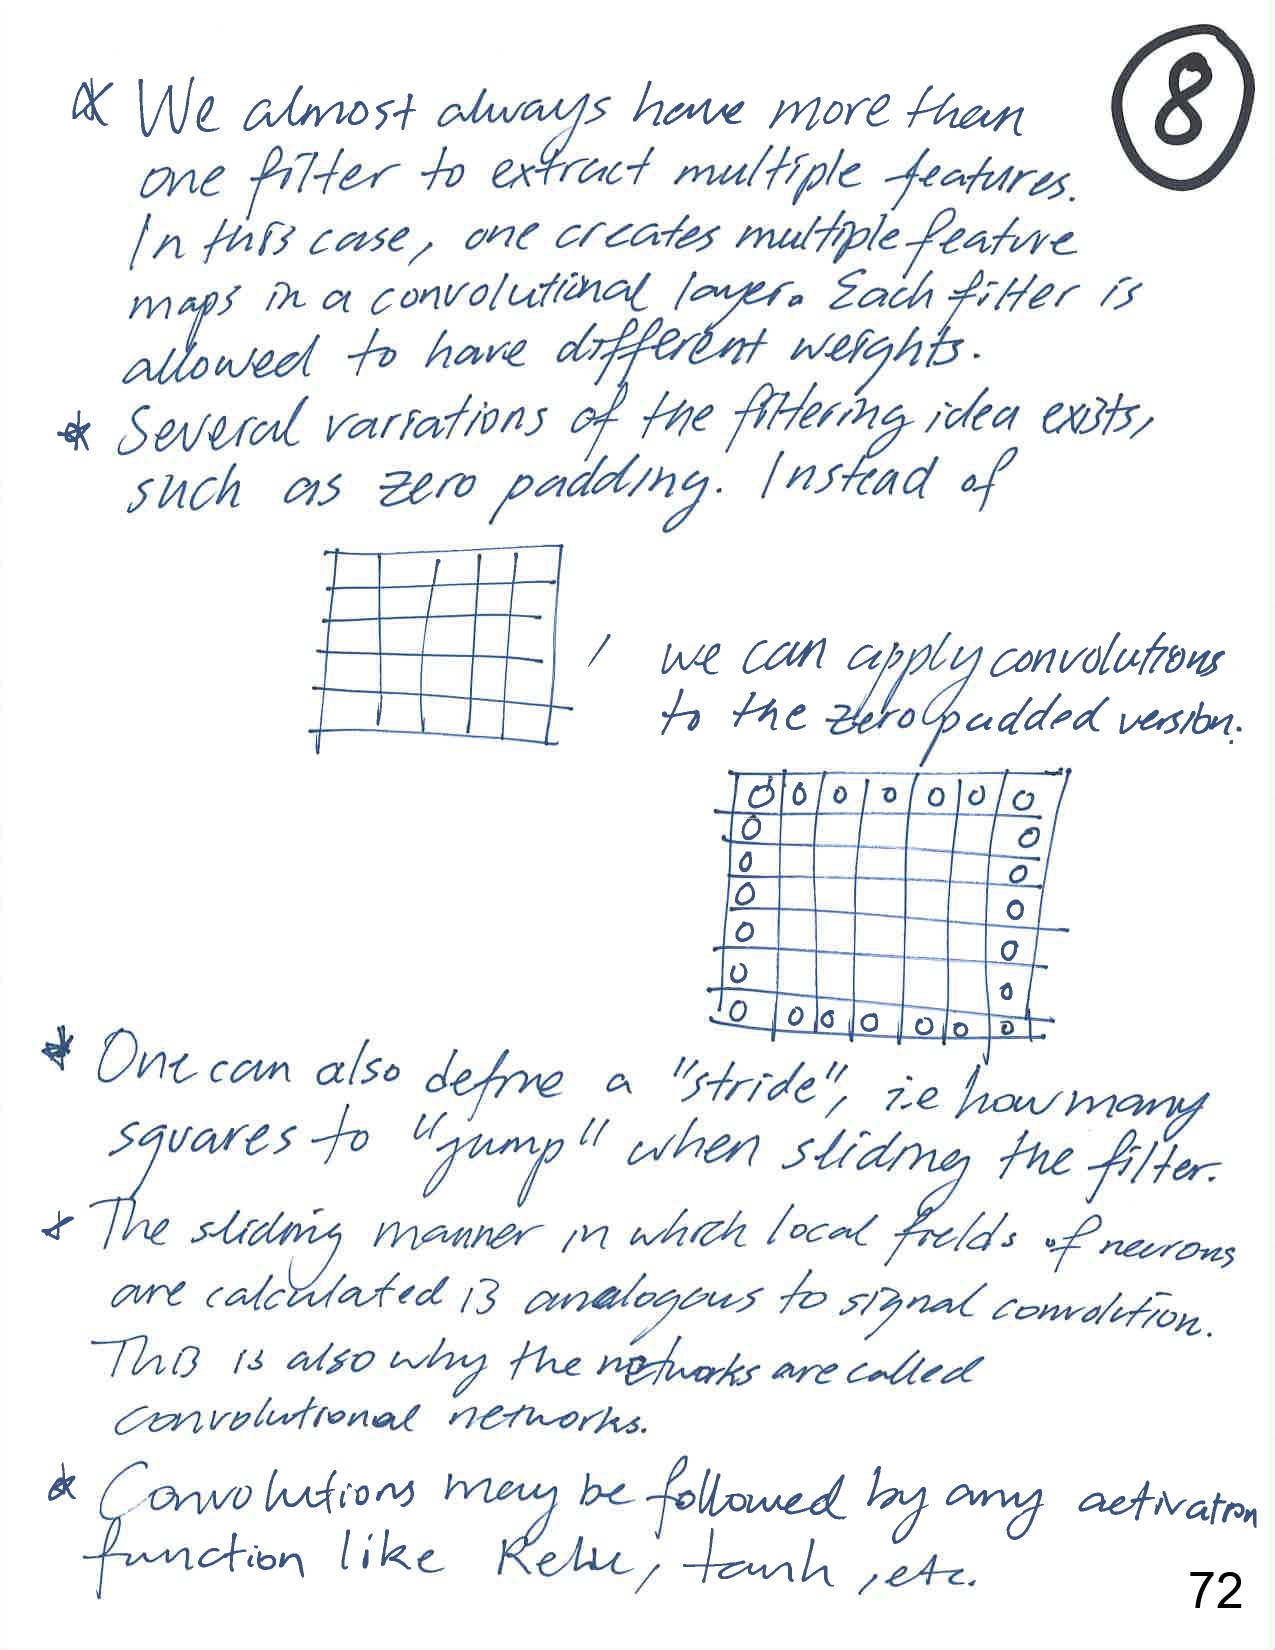 8
* We almost always have more than
one filter to extract multiple features.
In this case, one creates multiple feature
maps in a convolutional layer. Each filter is
allowed to have different weights.
* Several variations of the filtering idea exists,
such as zero padding. Instead of
, we can apply convolutions
to the zero padded version.
0 0 0 0 0 0 0
0 0
0 0
0 0
0 0
0 0
0 0 0 0 0 0 0
* One can also define a "stride", i.e how many
squares to "jump" when sliding the filter.
* The sliding manner in which local fields of neurons
are calculated is analogous to signal convolution.
This is also why the networks are called
convolutional networks.
* Convolutions may be followed by any activation
function like Relu, tanh, etc.
72